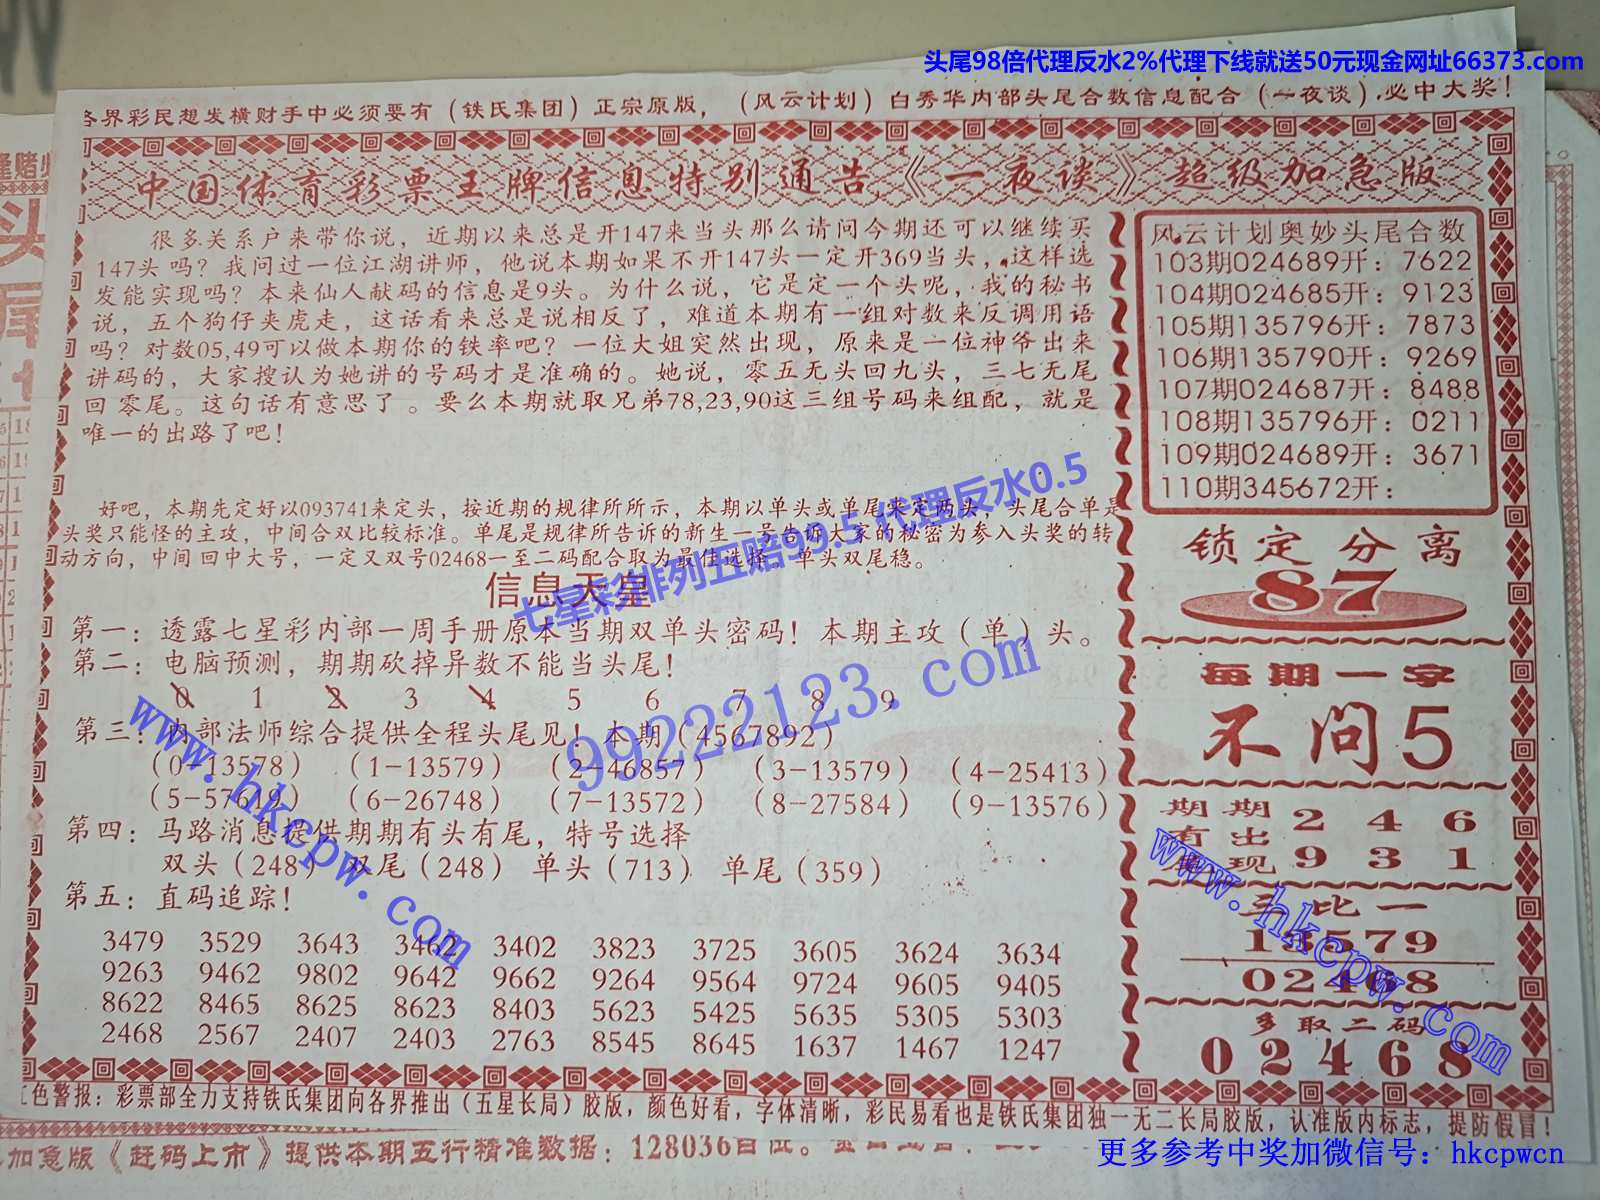 头尾98倍代理反水2%代理下线就送50元现金网址66373.com
各界彩民想发横财手中必须要有（铁氏集团）正宗原版，（风云计划）白秀华内部头尾合数信息配合（一夜谈）.必中大奖！
中国体育彩票王牌信息特别通告《一夜谈》超级加急版
很多关系户来带你说，近期以来总是开147来当头那么请问今期还可以继续买
147头吗？我问过一位江湖讲师，他说本期如果不开147头一定开369当头，这样选
发能实现吗？本来仙人献码的信息是9头。为什么说，它是定一个头呢，我的秘书
说，五个狗仔夹虎走，这话看来总是说相反了，难道本期有一组对数来反调用语
吗？对数05,49可以做本期你的铁率吧？一位大姐突然出现，原来是一位神爷出来
讲码的，大家搜认为她讲的号码才是准确的。她说，零五无头回九头，三七无尾
回零尾。这句话有意思了。要么本期就取兄弟78,23,90这三组号码来组配，就是
唯一的出路了吧！
好吧，本期先定好以093741来定头，按近期的规律所所示，本期以单头或单尾来定两头，头尾合单是
头奖只能怪的主攻，中间合双比较标准。单尾是规律所告诉的新生一号告诉大家的秘密为参入头奖的转
动方向，中间回中大号，一定又双号02468一至二码配合取为最佳选择，单头双尾稳。
信息天皇
第一：透露七星彩内部一周手册原本当期双单头密码！本期主攻（单）头。
第二：电脑预测，期期砍掉异数不能当头尾！
0 1 2 3 4 5 6 7 8 9
第三：内部法师综合提供全程头尾见！本期（4567892）
（0-13578）（1-13579）（2-46857）（3-13579）（4-25413）
（5-57619）（6-26748）（7-13572）（8-27584）（9-13576）
第四：马路消息提供期期有头有尾，特号选择
双头（248） 双尾（248） 单头（713） 单尾（359）
第五：直码追踪！
3479 3529 3643 3462 3402 3823 3725 3605 3624 3634
9263 9462 9802 9642 9662 9264 9564 9724 9605 9405
8622 8465 8625 8623 8403 5623 5425 5635 5305 5303
2468 2567 2407 2403 2763 8545 8645 1637 1467 1247
风云计划奥妙头尾合数
103期024689开：7622
104期024685开：9123
105期135796开：7873
106期135790开：9269
107期024687开：8488
108期135796开：0211
109期024689开：3671
110期345672开：
锁定分离
87
每期一字
不问5
期期 2 4 6
有出
现 9 3 1
三比一
13579
02468
多取二码
02468
七星彩排列五赔99.5 代理反水0.5
99222123.com
www.hkcpw.com
www.hkcpw.com
红色警报：彩票部全力支持铁氏集团向各界推出（五星长局）胶版，颜色好看，字体清晰，彩民易看也是铁氏集团独一无二长局胶版，认准版内标志，提防假冒！
加急版《赶码上市》提供本期五行精准数据：128036百位。
更多参考中奖加微信号：hkcpwcn